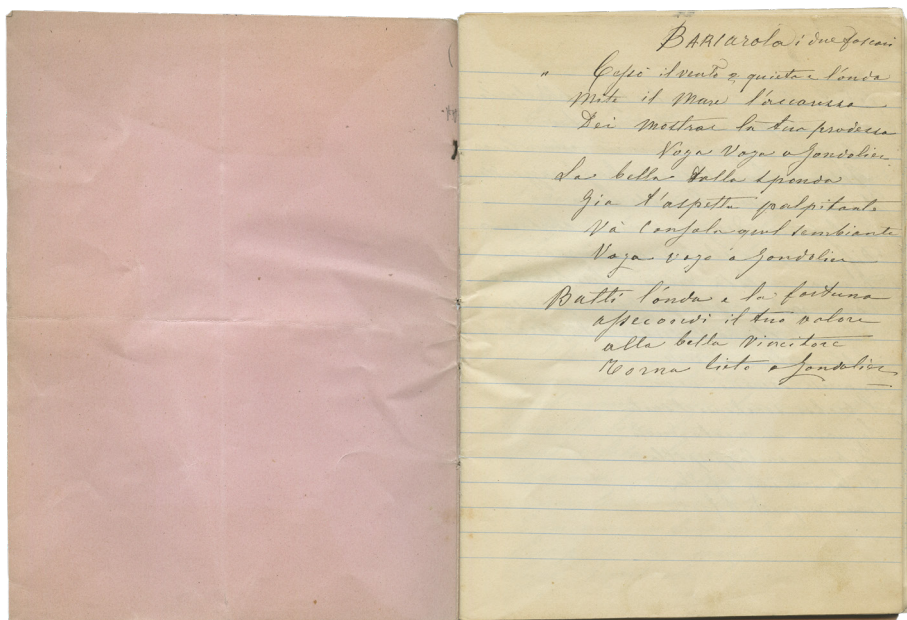 BARCarola i due foscari
" Cessò il vento e quieta e l'onda
Mite il Mare l'accaressa
Dei Mostrar la tua prodessa
Voga Voga o Gondolier
La bella dalla sponda
Gia t'aspetta palpitante
Và Consola quel sembiante
Voga voga o Gondolier
Batti l'onda e la fortuna
assecondi il tuo valore
alla bella Vincitore
Torna lieto o Gondolier